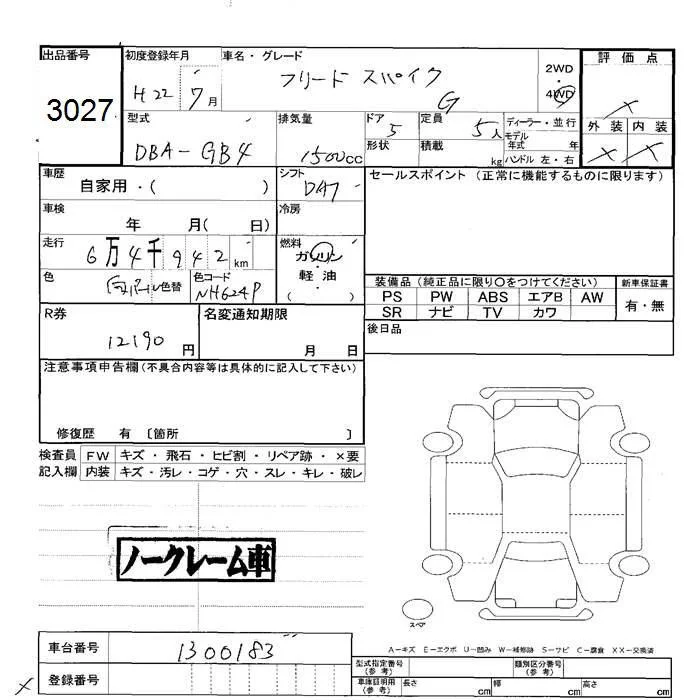 出品番号
3027
初度登録年月
H22 7月
車名・グレード
フリード スパイク
G
2WD
・
4WD
評価点
×
外装 内装
× ×
型式
DBA-GB4
排気量
1500cc
ドア
5
形状
定員
5人
積載
kg
ディーラー・並行
モデル
年式 年
ハンドル 左・右
車歴
自家用・( )
シフト
DA7
セールスポイント (正常に機能するものに限ります)
車検
年 月( 日)
冷房
走行
6万4千942km
燃料
ガソリン
軽・油
( )
色
白パール
色替
色コード
NH624P
装備品(純正品に限り〇をつけてください)
PS PW ABS エアB AW
SR ナビ TV カワ
新車保証書
有・無
R券
12190円
名変通知期限
月 日
後日品
注意事項申告欄(不具合内容等は具体的に記入して下さい)
修復歴 有 〔箇所 〕
検査員
記入欄
FW キズ・飛石・ヒビ割・リペア跡・×要
内装 キズ・汚レ・コゲ・穴・スレ・キレ・破レ
ノークレーム車
スペア
A－キズ E－エクボ U－凹み W－補修跡 S－サビ C－腐食 XX－交換済
車台番号
1300183
× 登録番号
型式指定番号
(参考)
類別区分番号
(参考)
車庫証明用
(参考)
長さ cm 幅 cm 高さ cm